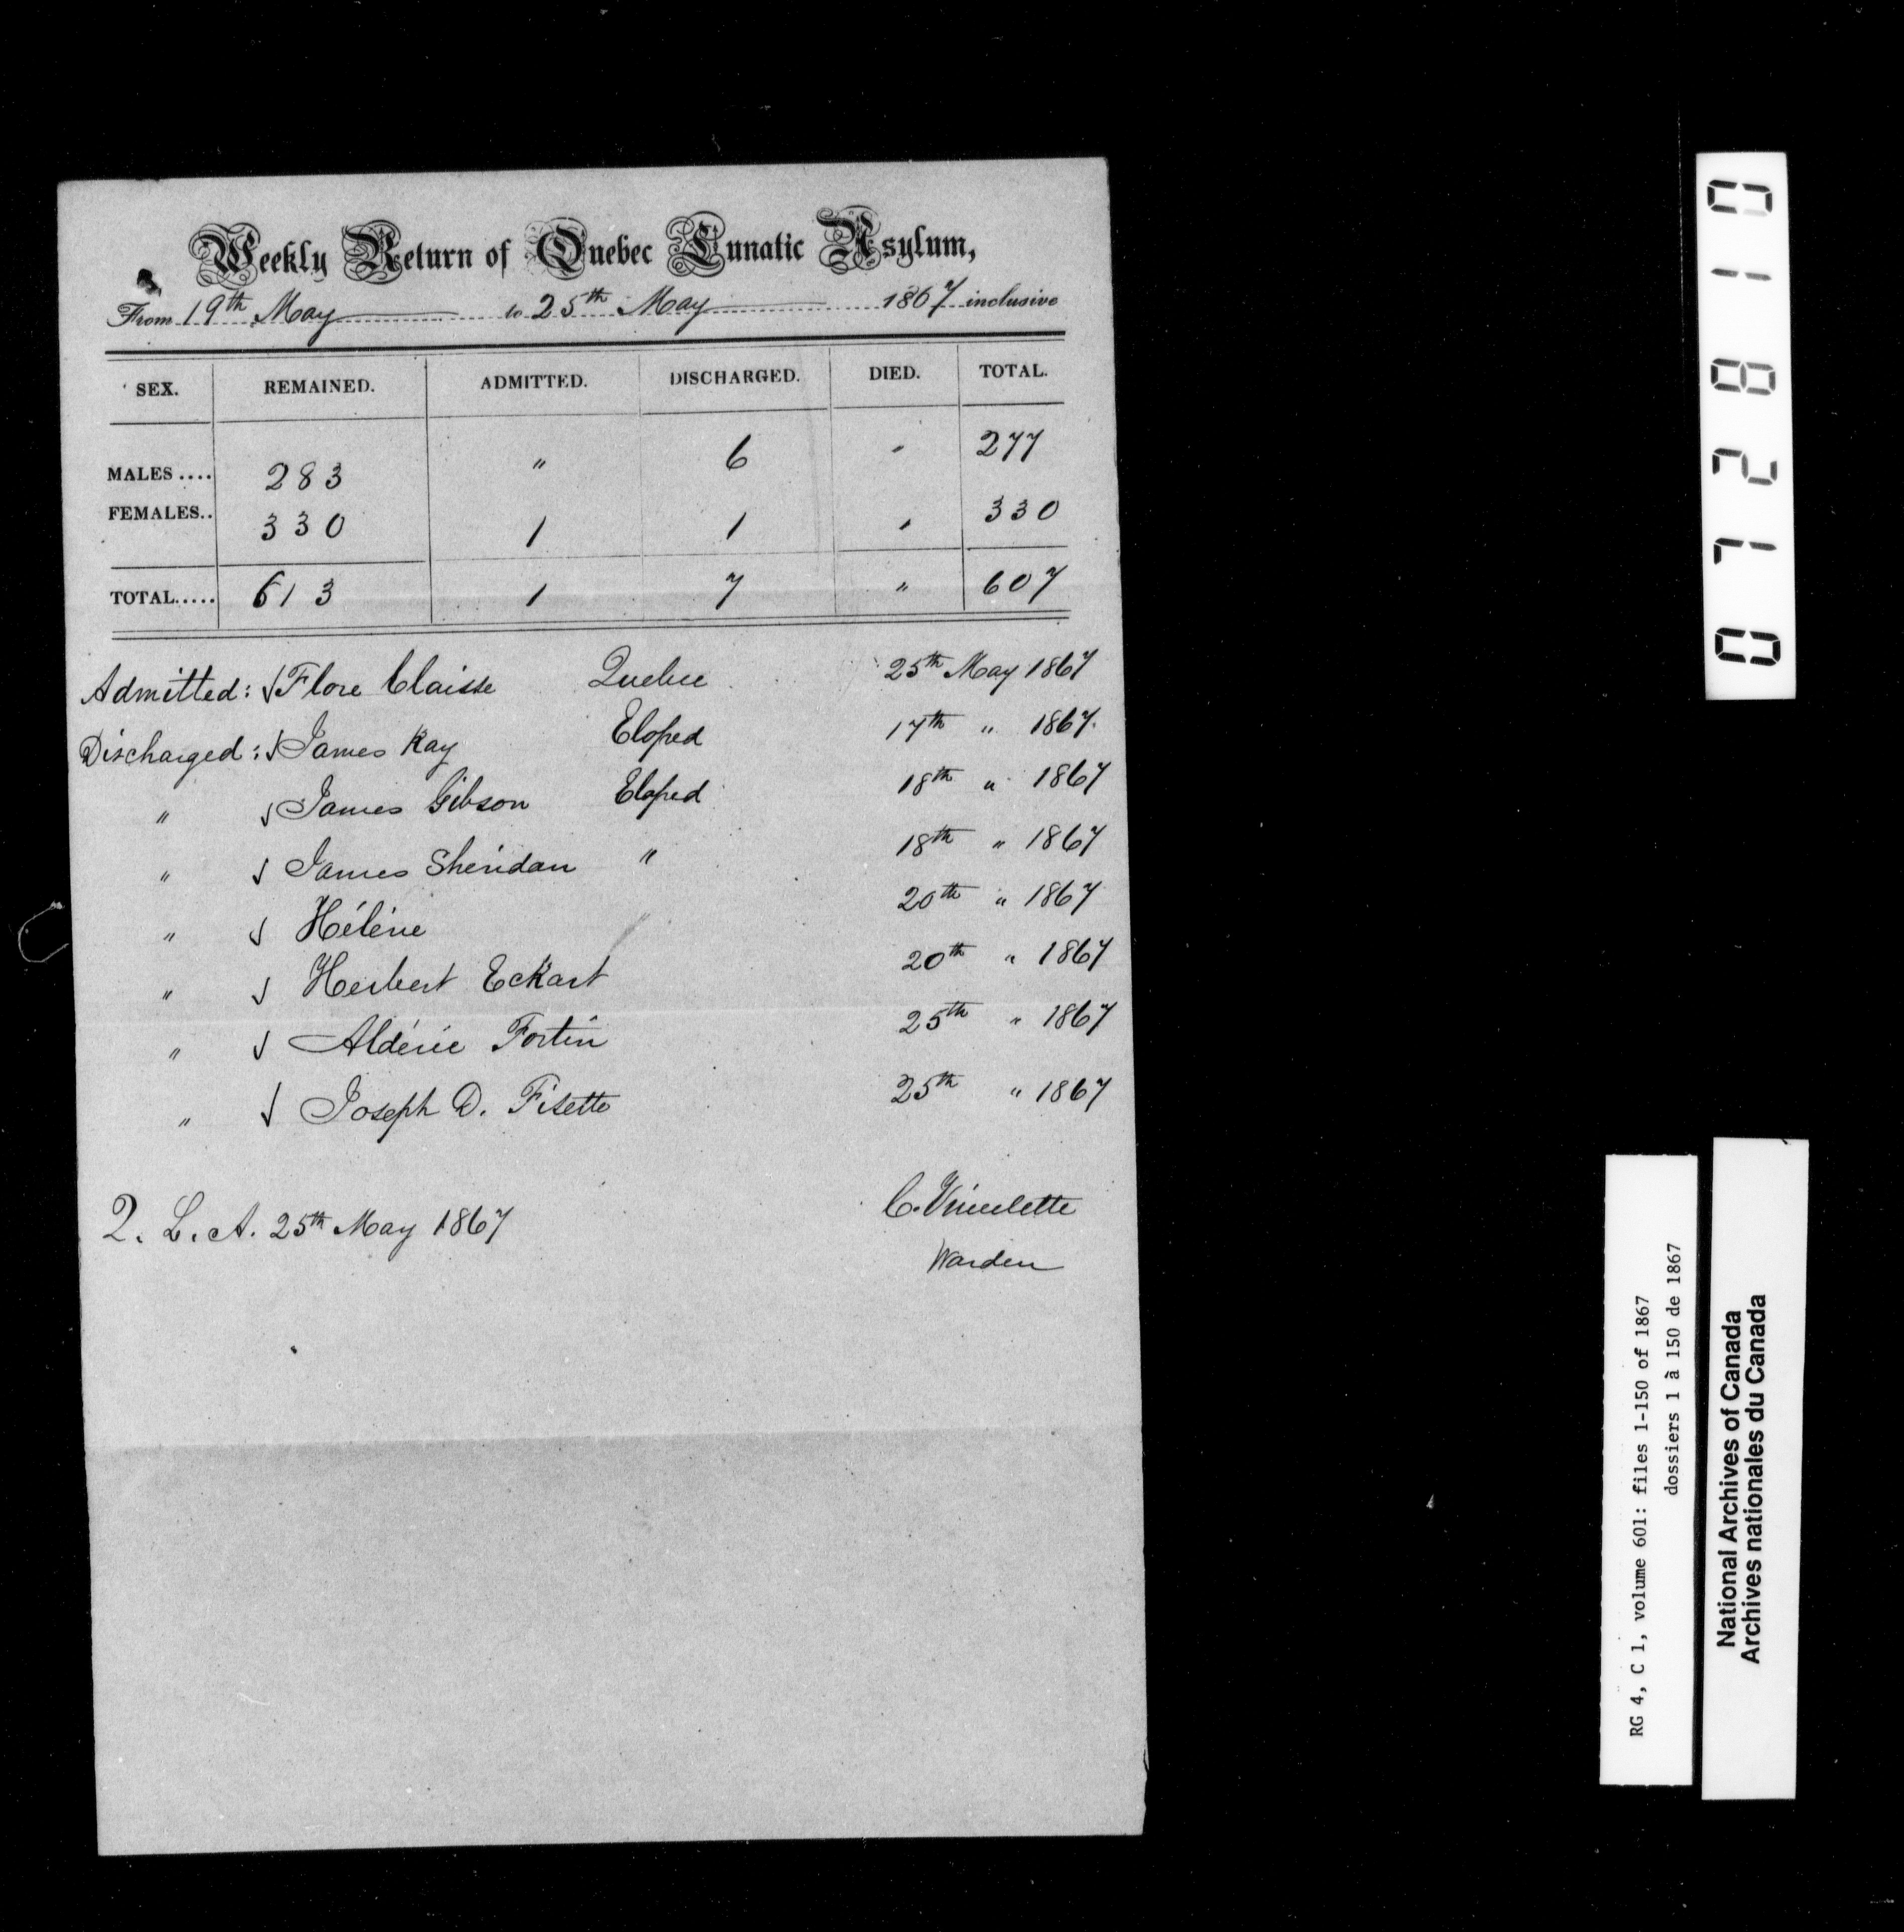 Weekly Return of Quebec Lunatic Asylum,
From 19th May to 25th May 1867 inclusive
SEX. REMAINED. ADMITTED. DISCHARGED. DIED. TOTAL.
MALES .... 283 " 6 " 277
FEMALES.. 330 1 1 " 330
TOTAL..... 613 1 7 " 607
Admitted: √ Flore Claisse Quebec 25th May 1867
Discharged: √ James Kay Eloped 17th " 1867.
" √ James Gibson Eloped 18th " 1867
" √ James Sheridan " 18th " 1867
" √ Hélène 20th " 1867
" √ Herbert Eckart 20th " 1867
" √ Aldéric Fortin 25th " 1867
" √ Joseph D. Fisette 25th " 1867
Q. L. A. 25th May 1867 C. Vincelette
Warden
0 1 8 2 1 0
RG 4, C 1, volume 601: files 1-150 of 1867
dossiers 1 à 150 de 1867
National Archives of Canada
Archives nationales du Canada